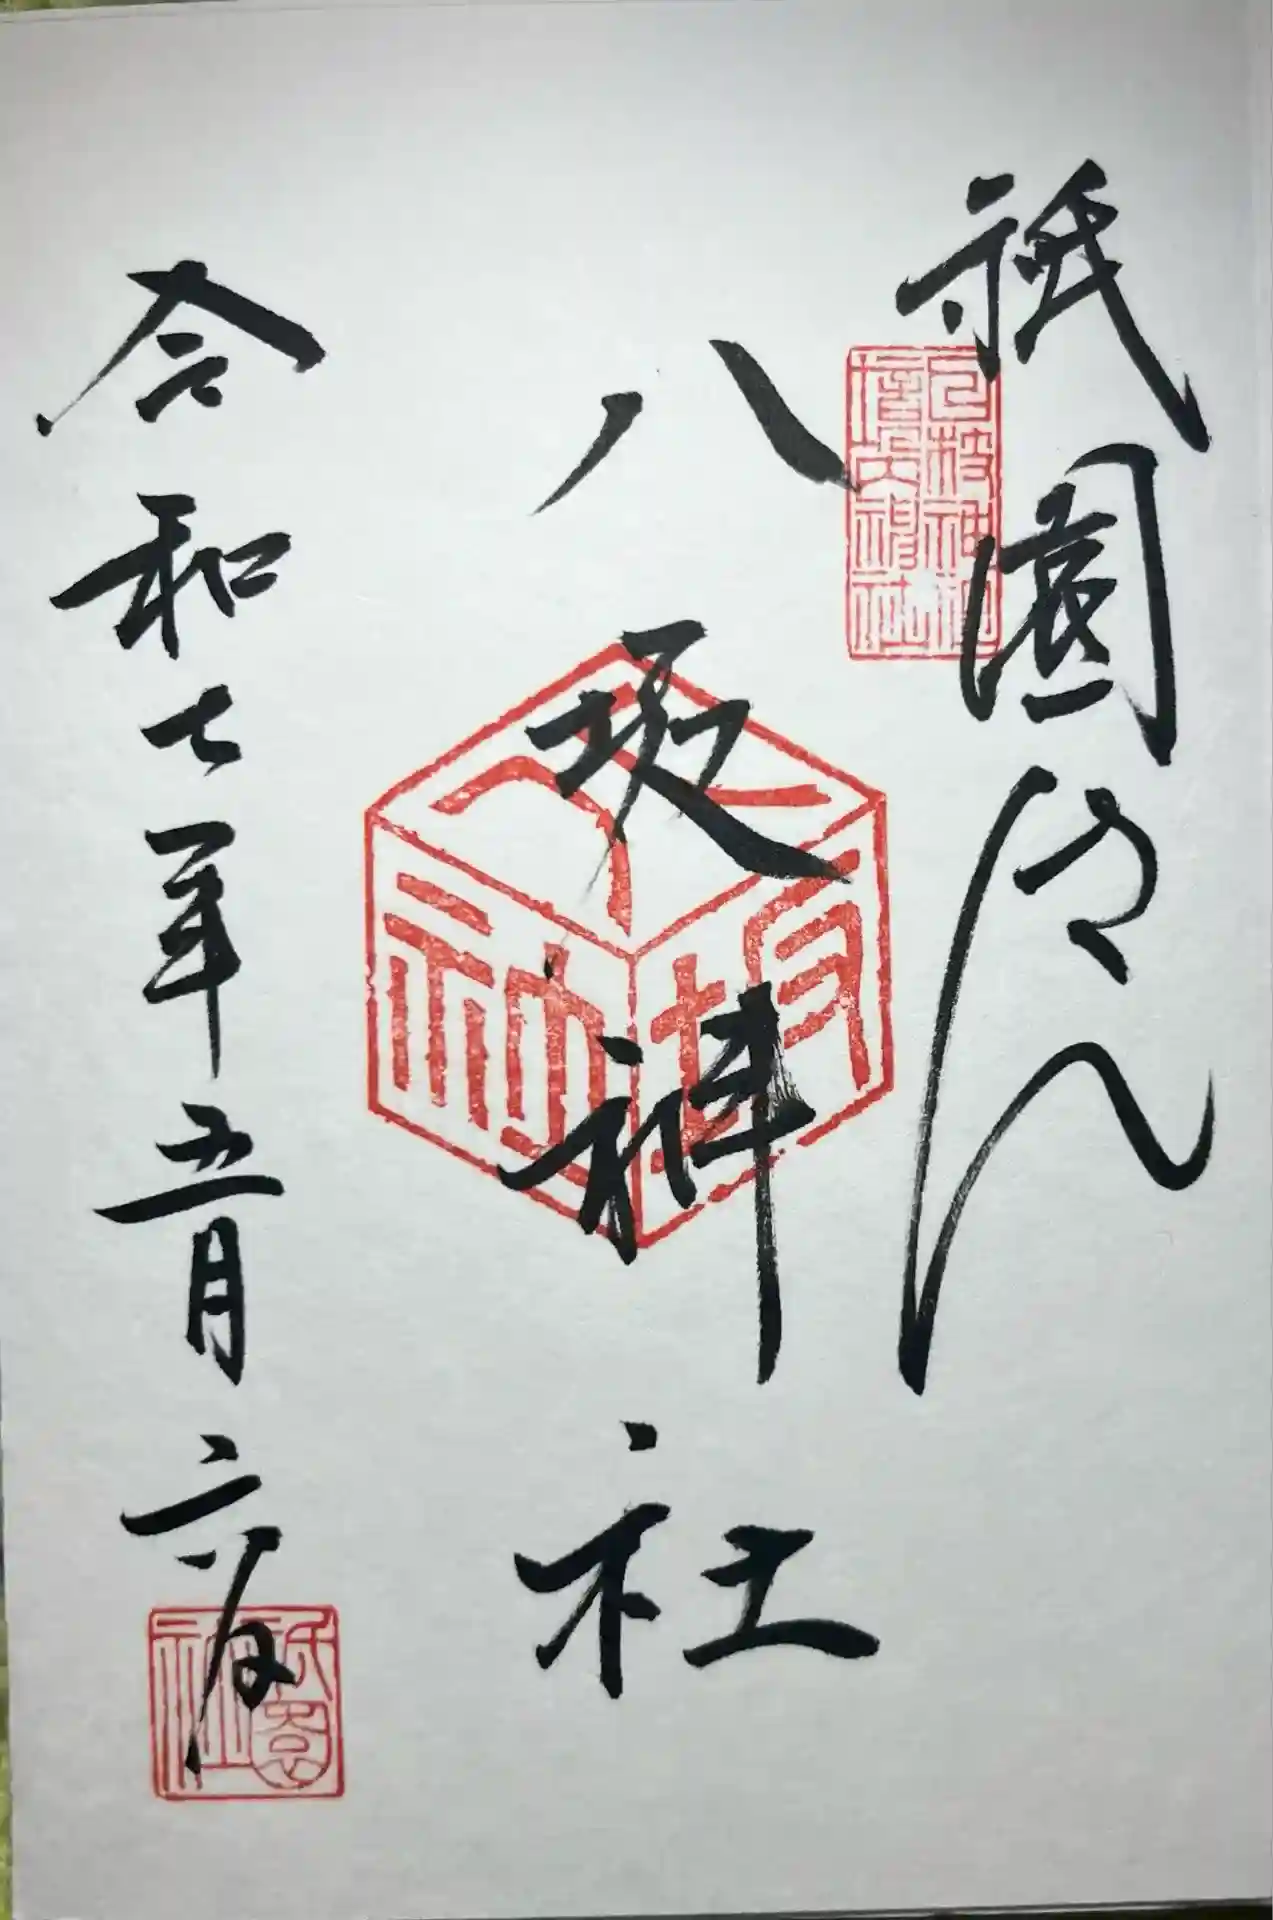 祇園さん
八坂神社
令和七年五月六日
八坂神
祇園社